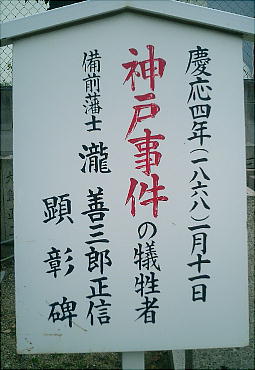 慶応四年(一八六八)一月十一日
神戸事件の犠牲者
備前藩士 瀧善三郎正信
顕彰碑